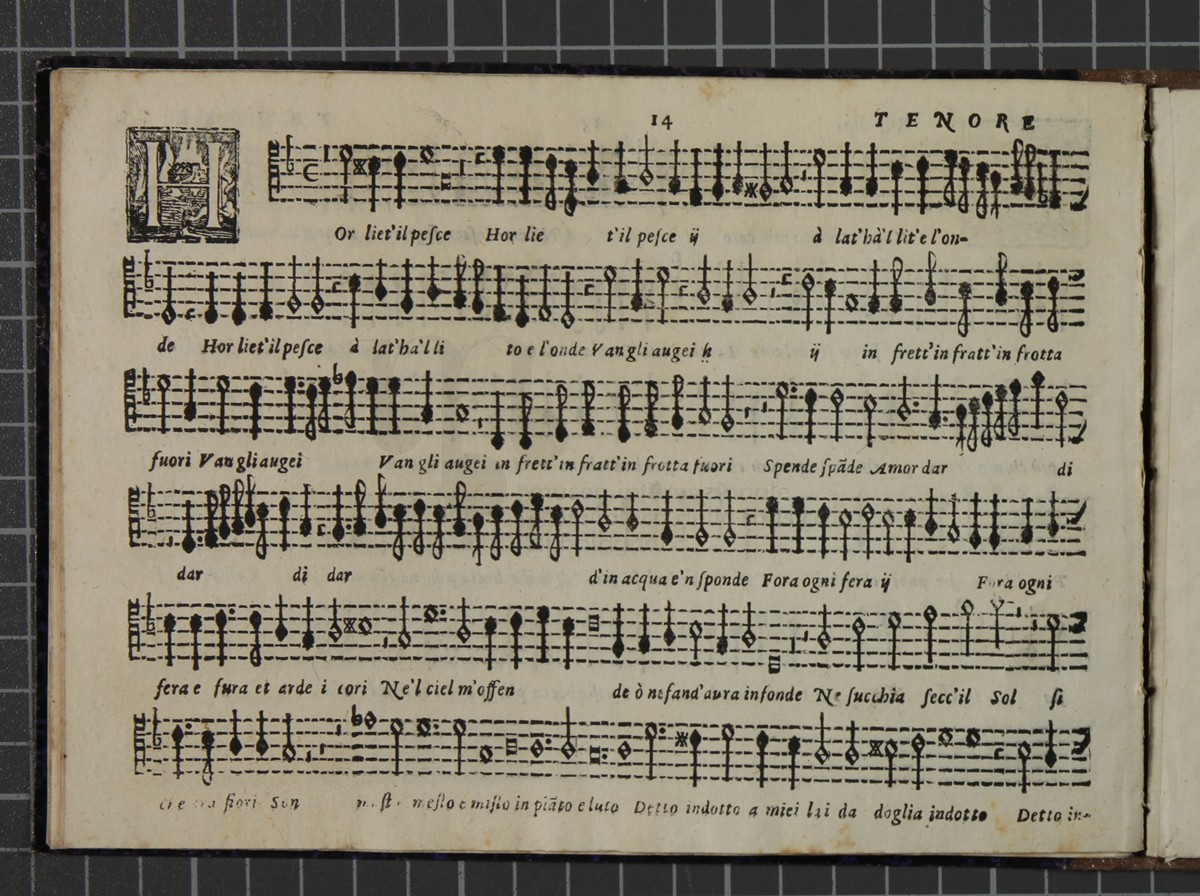 14 TENORE
HOr liet'il pesce Hor lie t'il pesce ij à lat'hà'l lit'e l'on-
de Hor liet'il pesce à lat'hà'l li to e l'onde Van gli augei ij ij in frett'in fratt'in frotta
fuori Van gli augei Van gli augei in frett'in fratt'in frotta fuori Spende spãde Amor dar di
dar di dar d'in acqua e'n sponde Fora ogni fera ij Fora ogni
fera e fura et arde i cori Ne'l ciel m'offen de ò nefand'aura infonde Ne succhia secc'il Sol si
fiori Son mesto e misto in piãto e luto Detto indotto a miei lai da doglia indotto Detto in-